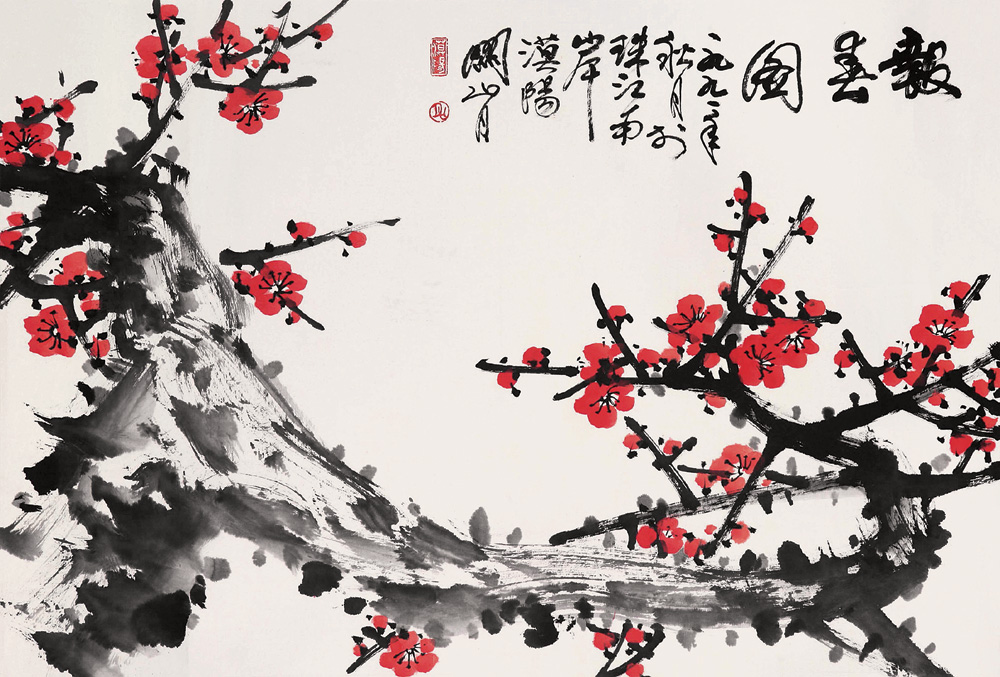 報春圖
一九九二年
秋月於
珠江南
岸
漠陽
關山月